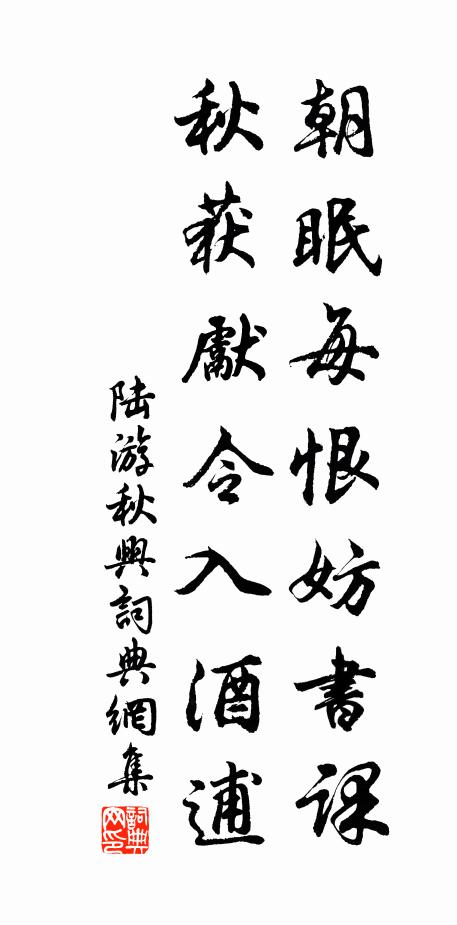 朝眠每恨妨書課
秋获獻令入酒逋
陆游秋興詞典網集
詞典网印